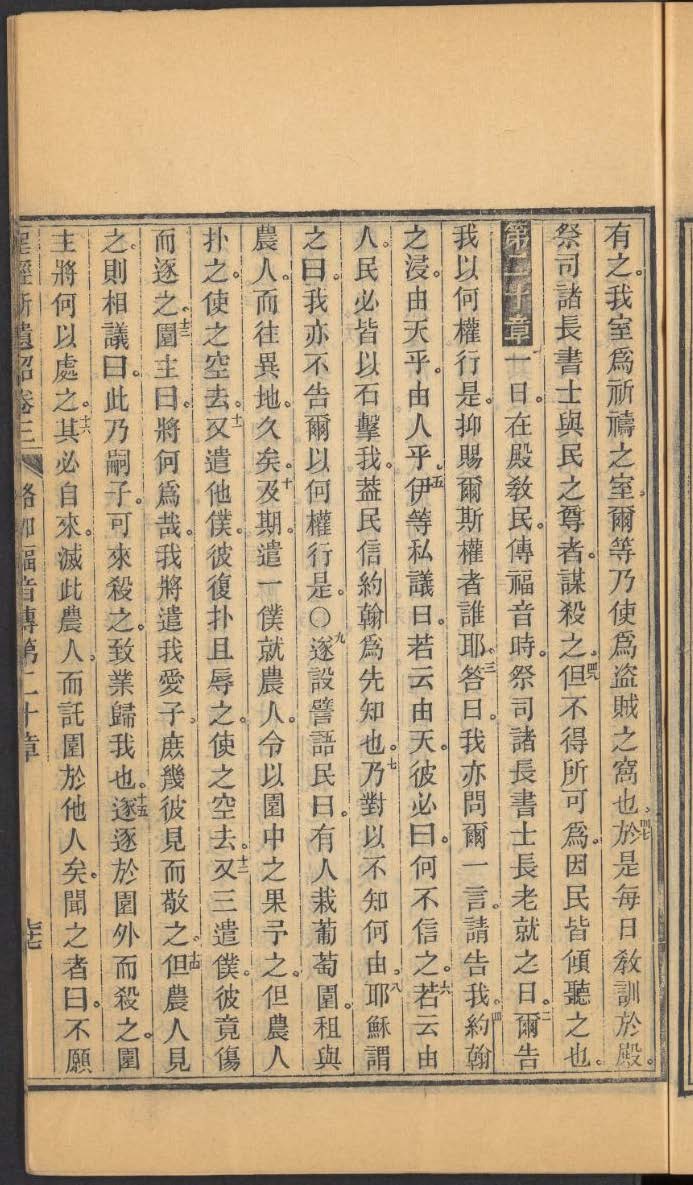 有之。我室爲祈禱之室。爾等乃使爲盗賊之窩也。四七於是每日敎訓於殿。
祭司諸長書士與民之尊者。謀殺之。四八但不得所可爲。因民皆傾聽之也。
第二十章一日。在殿敎民。傳福音時。祭司諸長書士長老就之曰。二爾告
我以何權行是。抑賜爾斯權者誰耶。三答曰。我亦問爾一言。請告我。四約翰
之浸。由天乎。由人乎。五伊等私議曰。若云由天。彼必曰。何不信之。六若云由
人。民必皆以石擊我。葢民信約翰爲先知也。七乃對以不知何由。八耶穌謂
之曰。我亦不告爾以何權行是。○九遂設譬語民曰。有人栽葡萄園。租與
農人。而往異地。久矣。十及期。遣一僕就農人。令以園中之果予之。但農人
扑之。使之空去。十一又遣他僕。彼復扑且辱之。使之空去。十二又三遣僕。彼竟傷
而逐之。十三園主曰。將何爲哉。我將遣我愛子。庶幾彼見而敬之。十四但農人見
之。則相議曰。此乃嗣子。可來殺之。致業歸我也。十五遂逐於園外而殺之。園
主將何以處之。十六其必自來。滅此農人。而託園於他人矣。聞之者曰。不願
聖經新遺詔卷三 路加福音傳第二十章